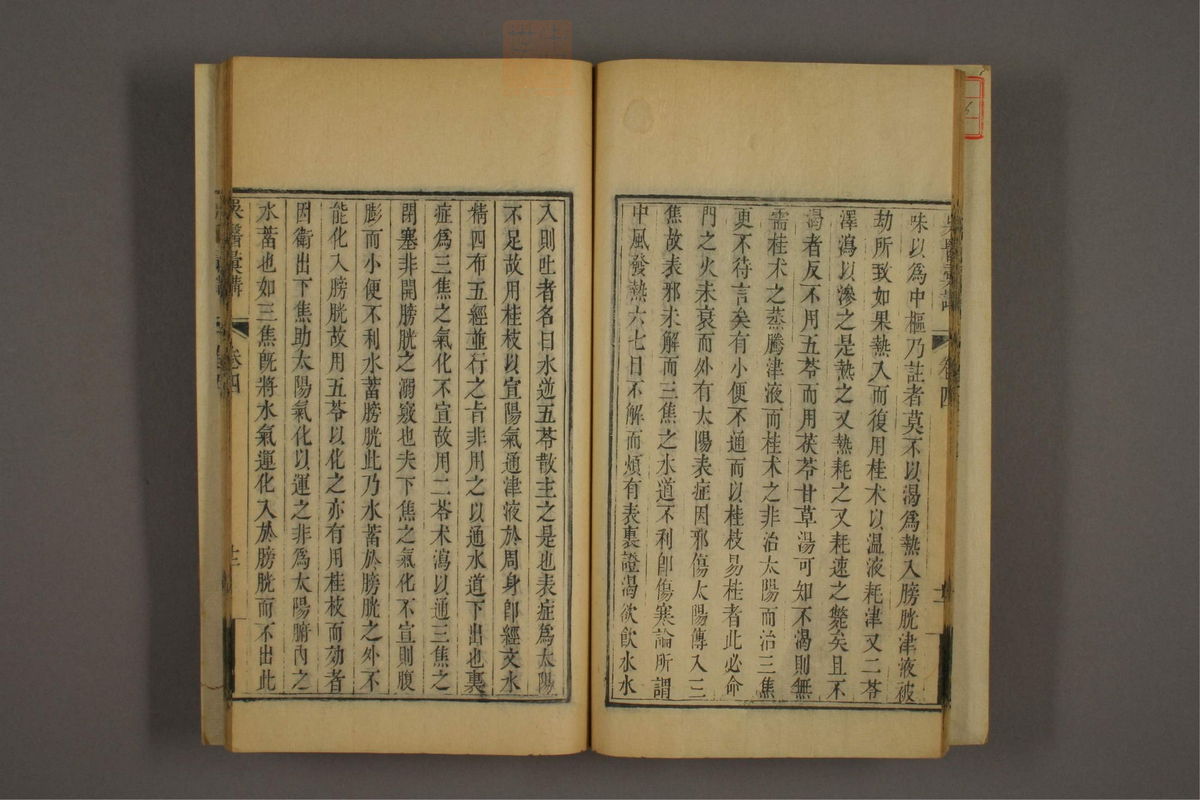 味以為中樞乃註者莫不以渴為熱入膀胱津液被
劫所致如果熱入而復用桂朮以温液耗津又二苓
澤瀉以滲之是熱之又熱耗之又耗速之斃矣且不
渴者反不用五苓而用茯苓甘草湯可知不渴則無
需桂朮之蒸騰津液而桂朮之非治太陽而治三焦
更不待言矣有小便不通而以桂枝易桂者此必命
門之火未衰而外有太陽表症因邪傷太陽傳入三
焦故表邪未解而三焦之水道不利卽傷寒論所謂
中風發熱六七日不解而煩有表裏證渴欲飲水水
入則吐者名曰水逆五苓散主之是也表症為太陽
不足故用桂枝以宣陽氣通津液於周身卽經文水
精四布五經並行之旨非用之以通水道下出也裏
症為三焦之氣化不宣故用二苓朮瀉以通三焦之
閉塞非開膀胱之溺竅也夫下焦之氣化不宣則腹
膨而小便不利水蓄膀胱此乃水蓄於膀胱之外不
能化入膀胱故用五苓以化之亦有用桂枝而効者
因衛出下焦助太陽氣化以運之非為太陽腑內之
水蓄也如三焦旣將水氣運化入於膀胱而不出此
吳醫彙講
卷四